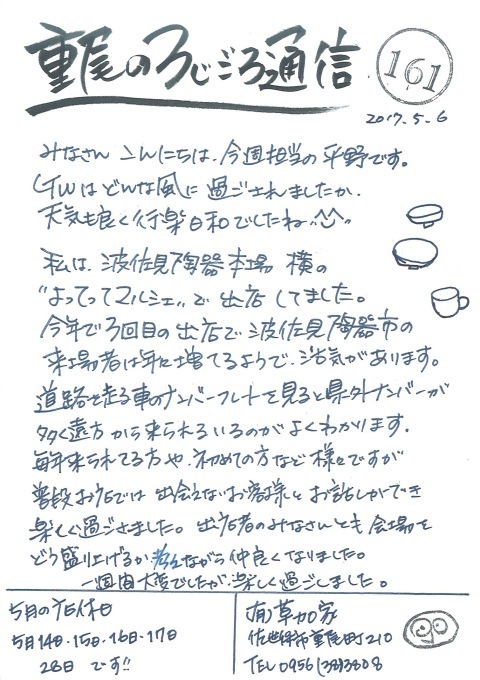 重尾のろじごろ通信
161
2017.5.6
みなさん こんにちは、今週担当の平野です。
GWはどんな風に過ごされましたか、
天気も良く行楽日和でしたね。
私は、波佐見陶器本場 横の
"よってってマルシェ"で出店してました。
今年で3回目の出店で波佐見陶器市の
来場者は年々増てるようで、活気があります。
道路を走る車のナンバープレートを見ると県外ナンバーが
多く遠方から来られるいるのがよくわかります。
毎年来られてる方や、初めての方など様々ですが
普段お店では出会えないお客様とお話しができ
楽しく過ごさました。出店者のみなさんとも会場を
どう盛り上げるか考えながら仲良くなりました。
一週間大変でしたが、楽しく過ごしました。
5月の店休日
5月14日・15日・16日・17日
28日 です!!
(有)草加家
佐世保市重尾町210
TEL 0956(38)3808